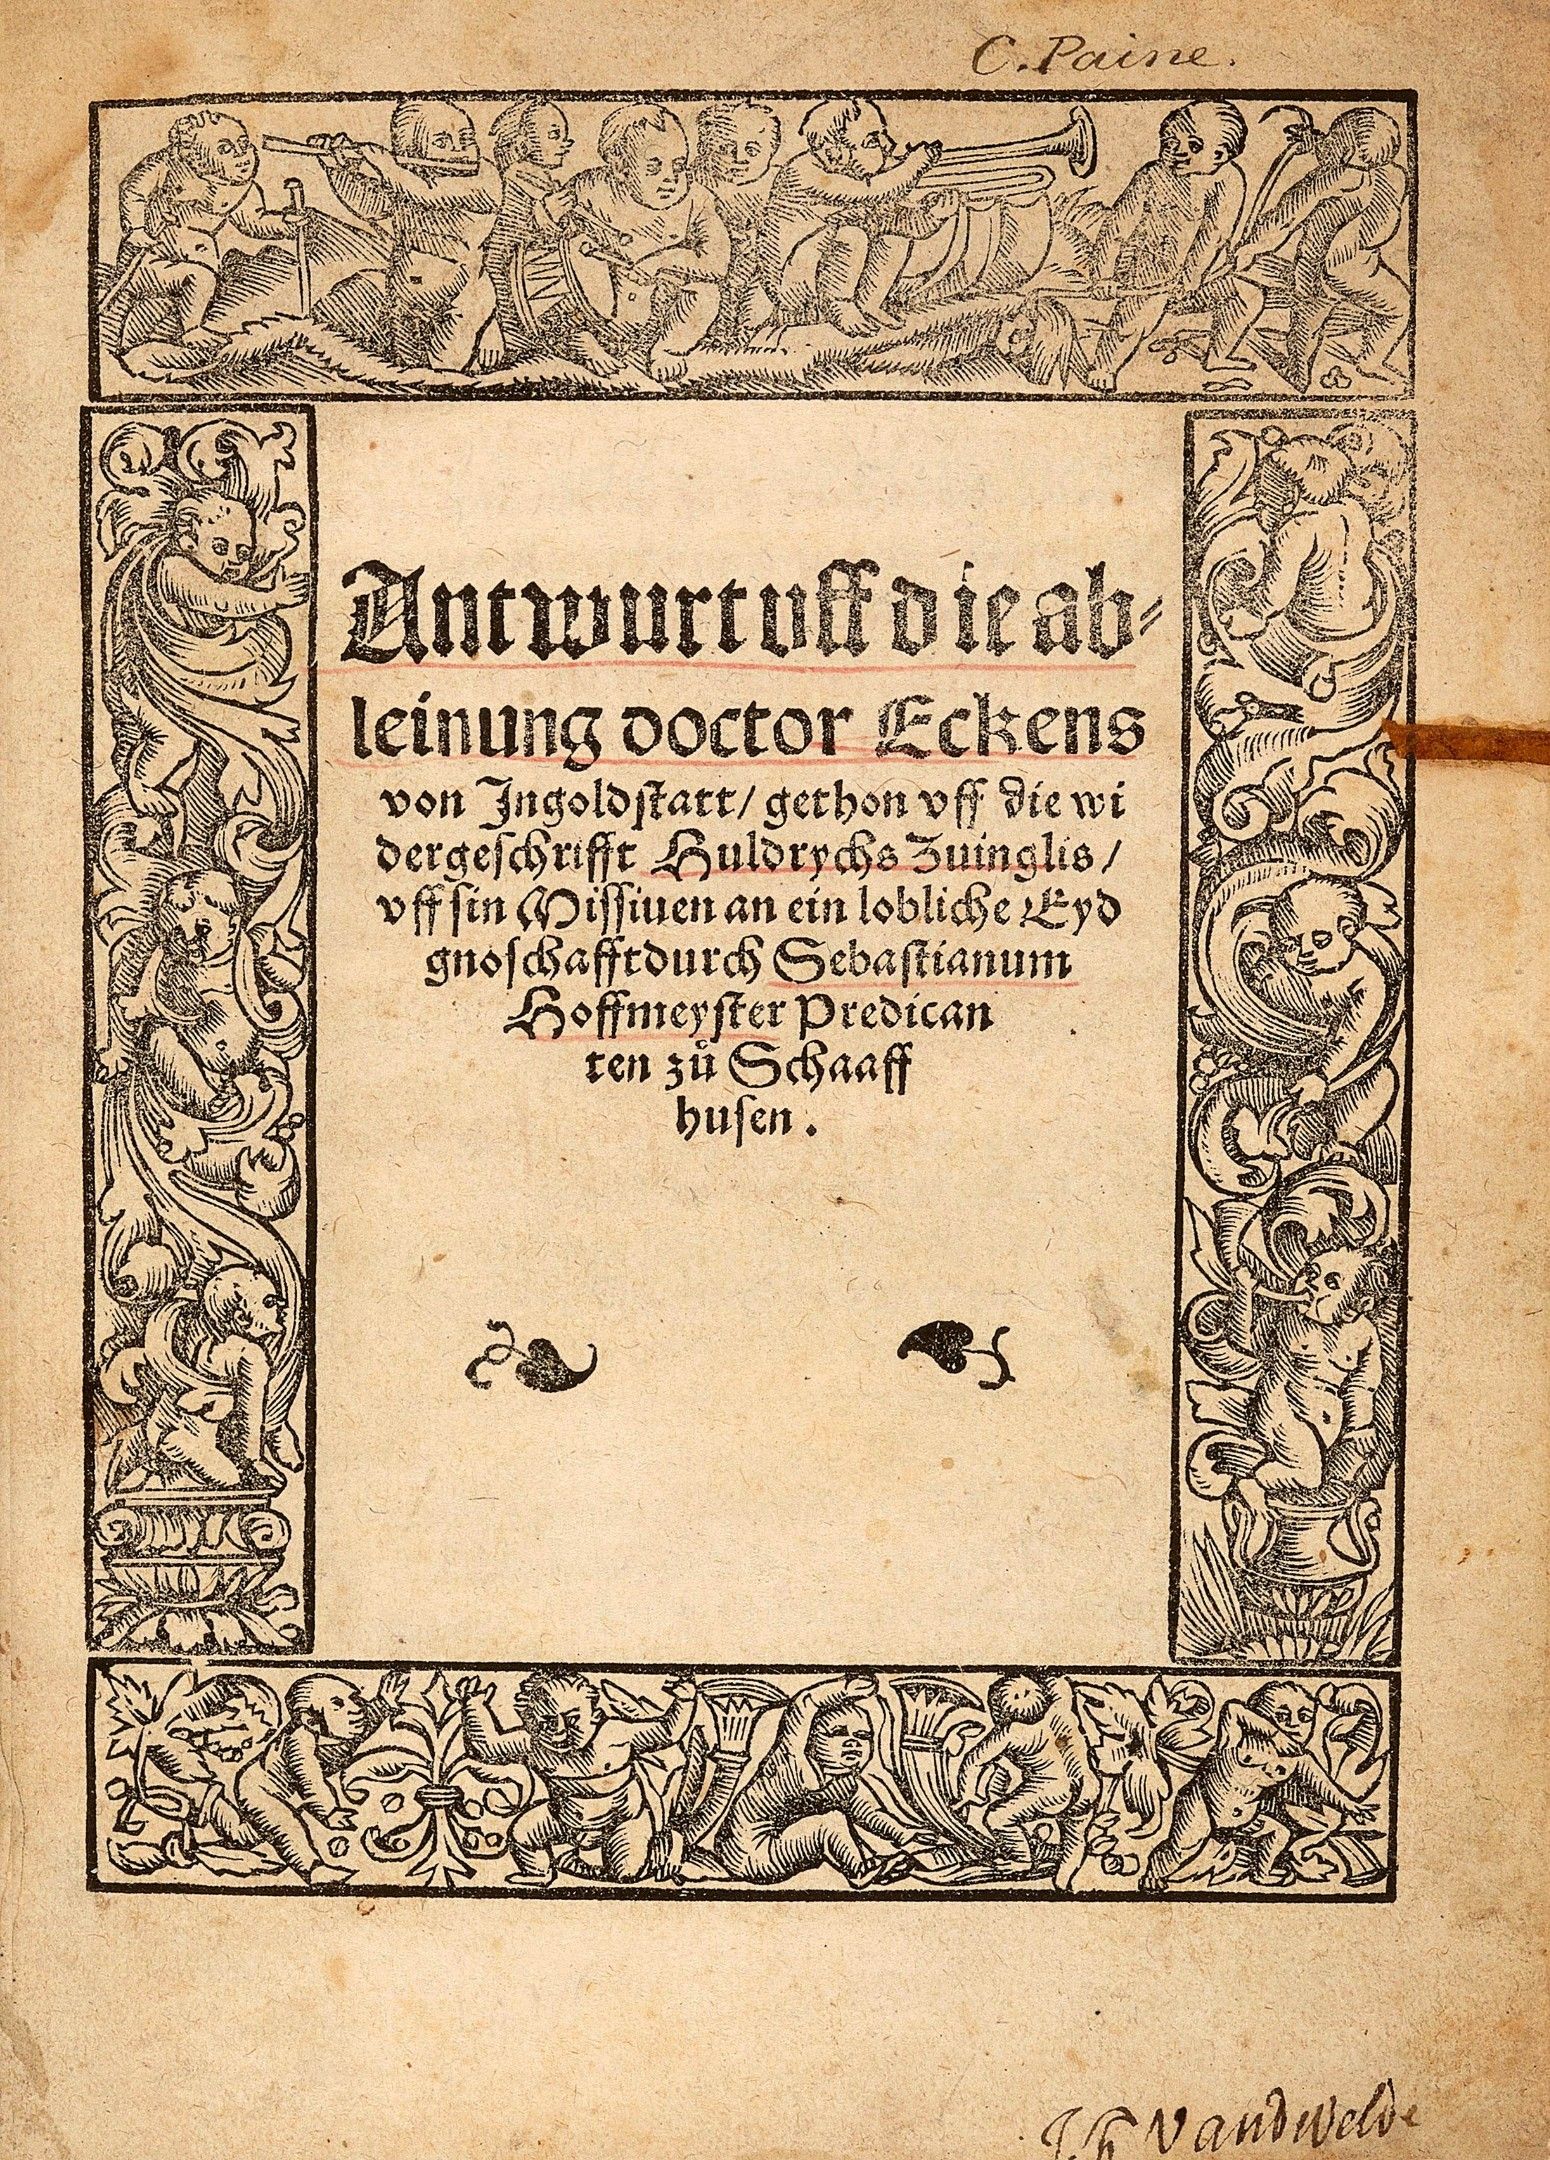 C. Paine.
Antwurt uff die ab⸗
leinung doctor Eckens
von Ingoldstatt/ gethon vff die wi
dergeschrifft Huldrychs Zuinglis/
vff sin Missiuen an ein lobliche Eyd
gnoschafft durch Sebastianum
Hoffmeyster Predican
ten zů Schaaff
husen.
Vandwelde